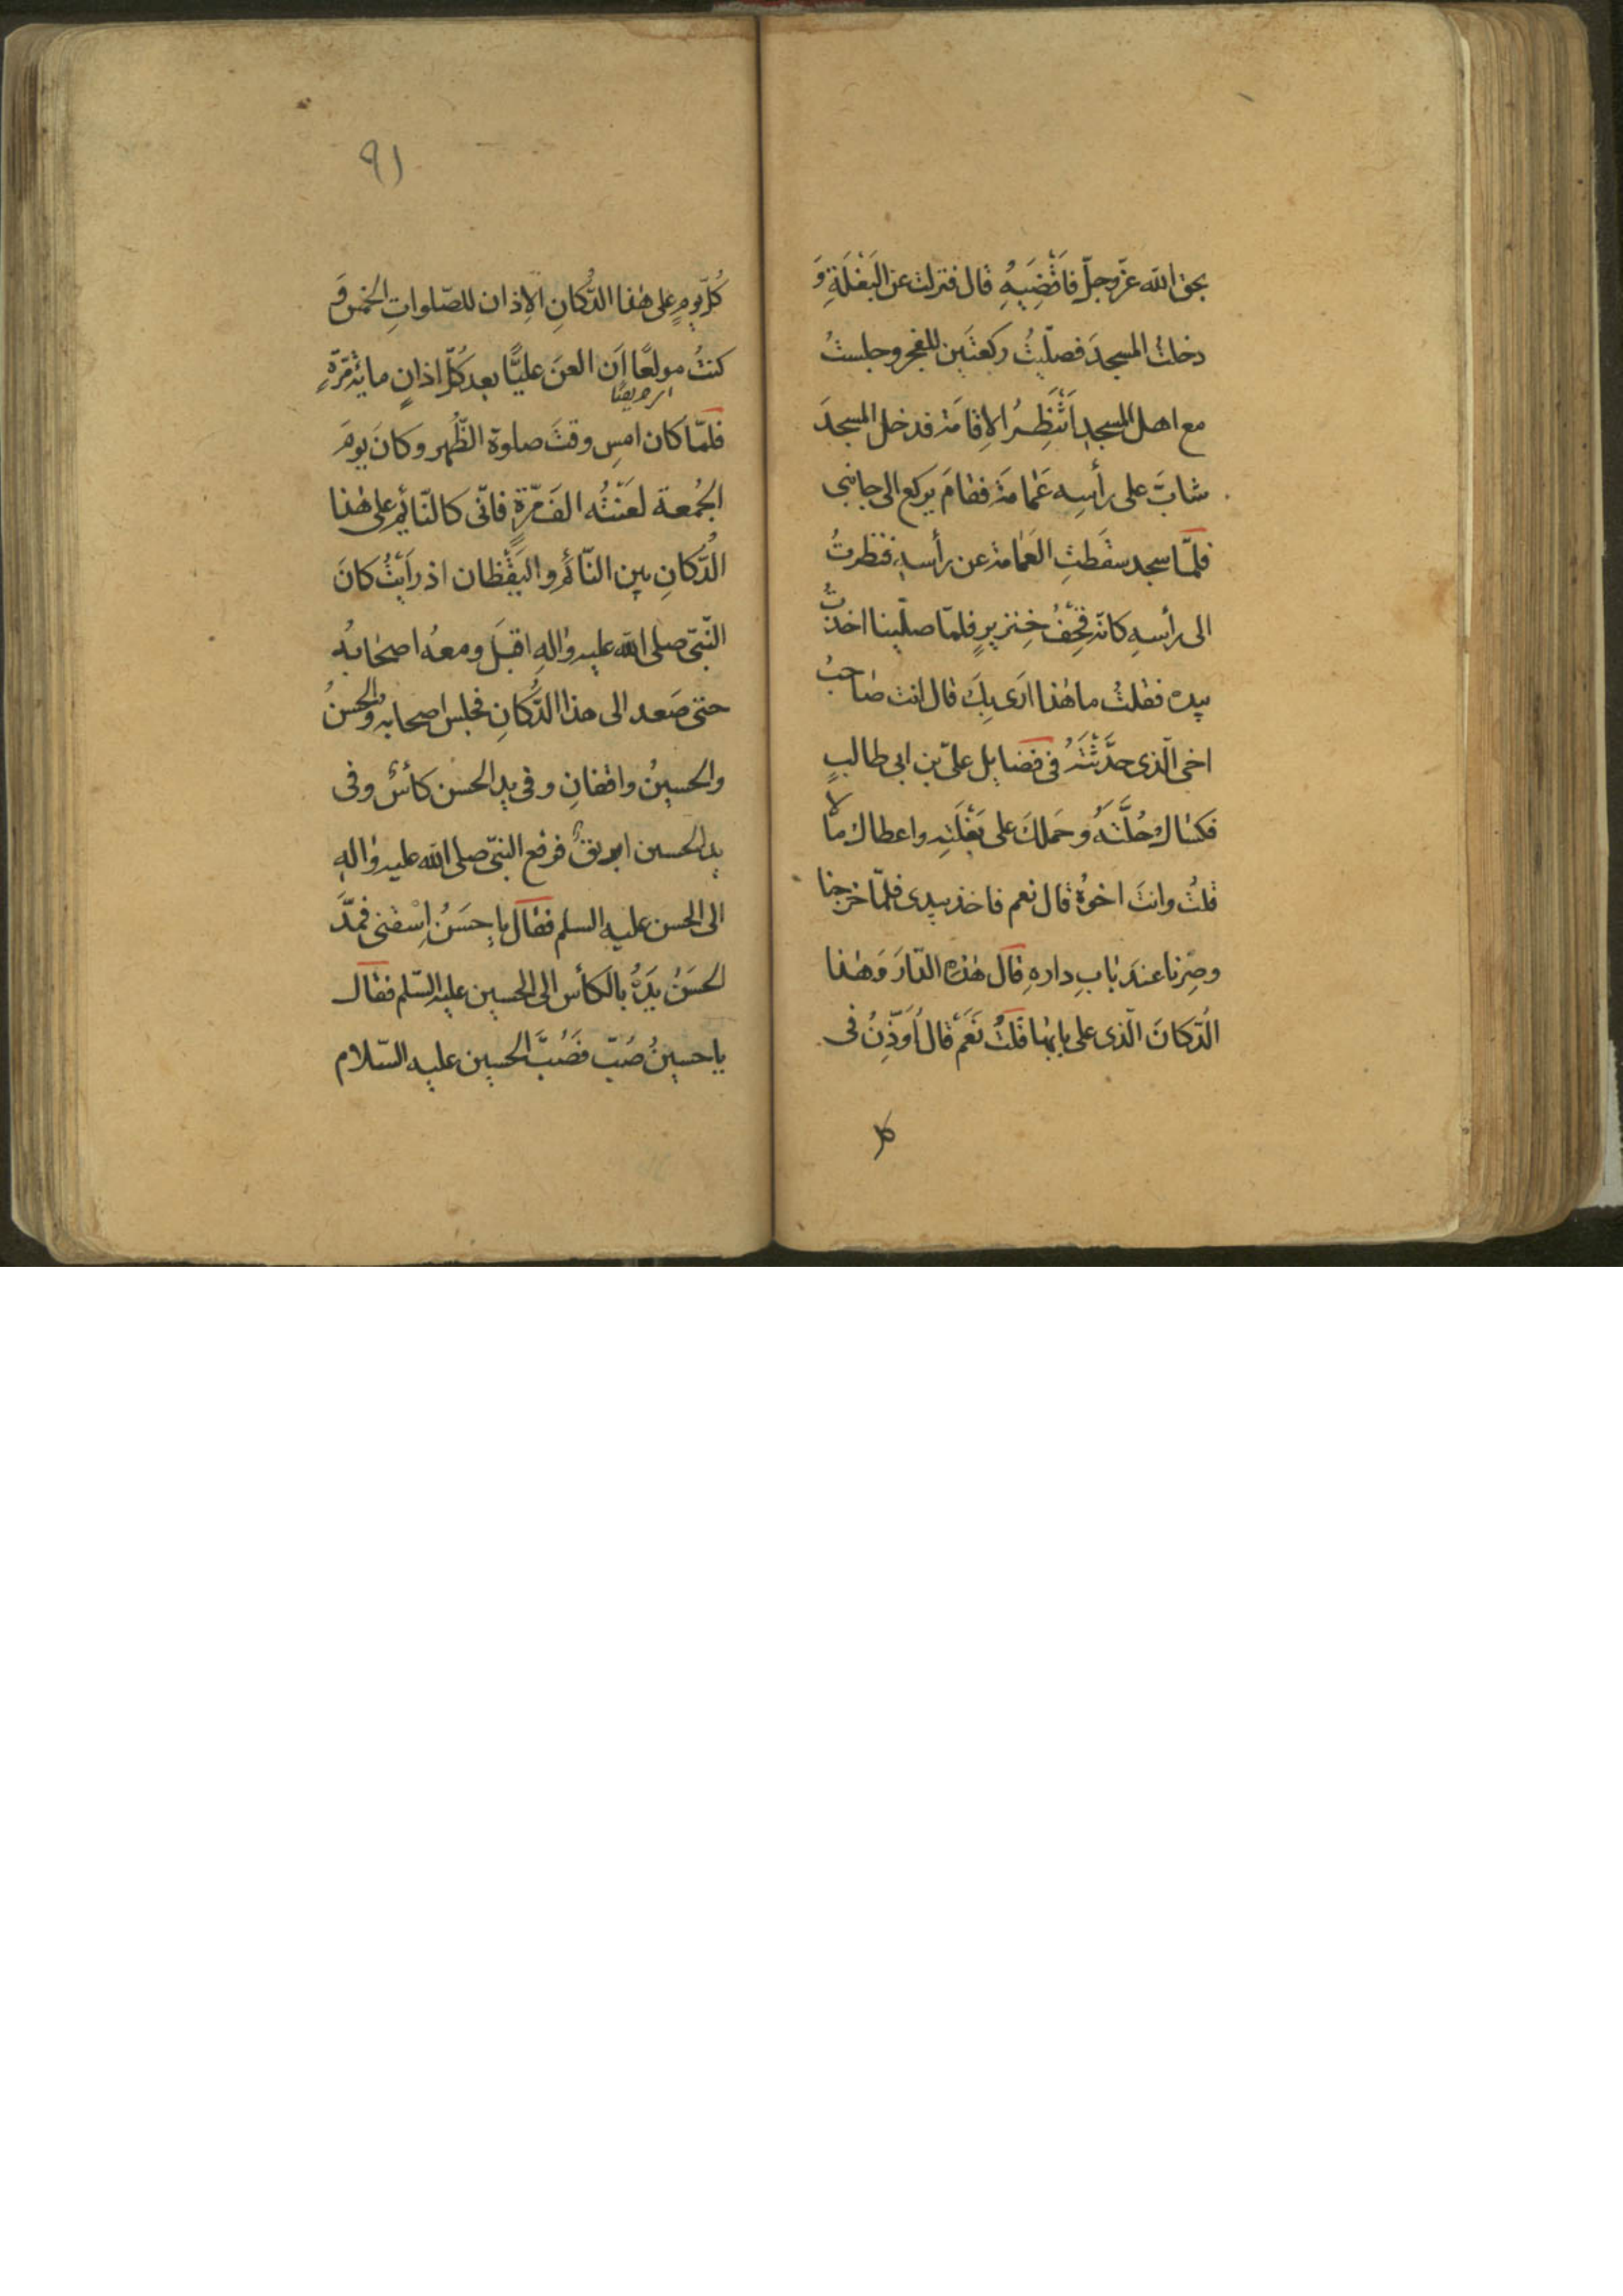 بحق الله عزّ وجلّ فَاقْضِيَهُ قال فنزلت عن البَغْلَةِ وَ
دخلت المسجدَ فصلّيتُ ركعتَين للفجر وجلستُ
مع اهل المسجدِ اَنْتَظِرُ الاِقامَة فدخل المسجدَ
شابّ على رأسِه عَمامَة فقامَ يركع الى جانبى
فلمّا سجد سقَطتِ العَمامة عن رأسه فنظرتُ
الى رأسِهِ كانّه قِحْفُ خِنزيرٍ فلمّا صلّينا اخذتُ
بيده فقلتُ ما هٰذا ارَى بِكَ قال انت صاحبُ
اخى الّذى حدَّثْتَهُ فى فضايل علىّ بن ابى طالبٍ
فكساك حُلَّتَهُ وحَملكَ على بَغْلَتِه واعطاك مالًا
قلتُ وانتَ اخوُهُ قال نعم فاخذ بيدى فلمّا خرجنا
وصِرنا عندَ بابِ دارهِ قال هٰذه الدّارَ وَهٰذا
الدّكانَ الّذى على بابها قلتُ نَعَم قال اُوَذِّنُ فى
كل
٩١
كُلّ يومٍ على هٰذا الدُّكانِ الاِذان للصّلواتِ الخمس وَ
كنتُ مولعًا اَن العنَ عليًّا بعد كُلّ اذانٍ مائة مَرّةٍ
اى حريصًا
فلمّا كان امسِ وقتَ صلوة الظُّهر وكانَ يومَ
الجُمعة لعَنْتُه الفَ مَرّةٍ فانّى كالنّائِمِ على هٰذا
الدُّكانِ بين النّائم واليَقْظان اذ رَاَيْتُ كانَ
النّبىّ صلى الله عليه واٰلهِ اقبَلَ ومعهُ اصحابهُ
حتى صَعد الى هذا الدُّكانِ فجلس اصحابه والحسنُ
والحسينُ واقفانِ وفى يد الحسن كأسٌ وفى
يد الحسين ابريقٌ فرفع النبىّ صلى الله عليه واٰلهِ
الى الحسن عليه السلم فقال يا حَسَنُ اِسْقنى فمدَّ
الحسَنُ يَدَهُ بالكأس الى الحسين عليه السّلم فقال
يا حسينُ صُبّ فَصَبَّ الحسين عليه السّلام